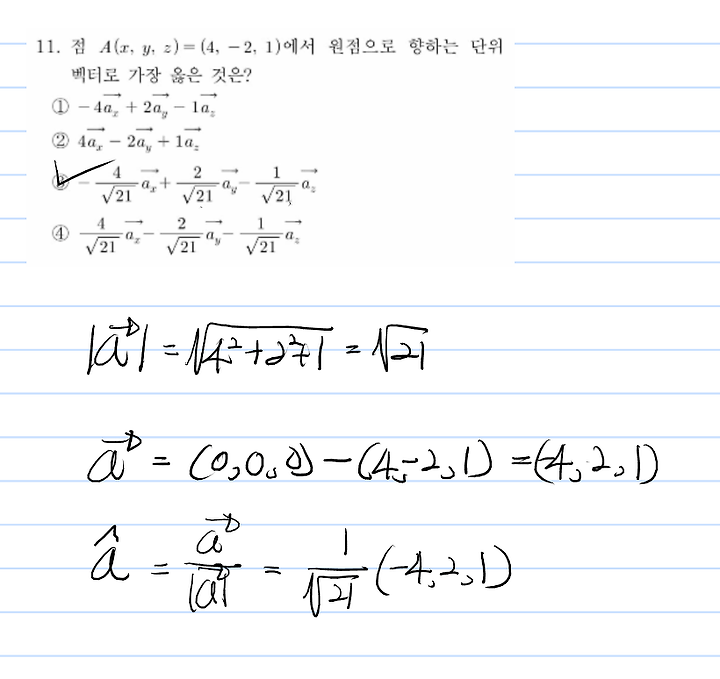 11. 점 A(x, y, z)=(4, -2, 1)에서 원점으로 향하는 단위
벡터로 가장 옳은 것은?
① -4a⃗x + 2a⃗y - 1a⃗z
② 4a⃗x - 2a⃗y + 1a⃗z
③ -4/√21 a⃗x + 2/√21 a⃗y - 1/√21 a⃗z
④ 4/√21 a⃗x - 2/√21 a⃗y - 1/√21 a⃗z
|a⃗| = √(4²+2²+1) = √21
a⃗ = (0,0,0) - (4,-2,1) = (-4,2,1)
â = a⃗/|a⃗| = 1/√21 (-4,2,1)